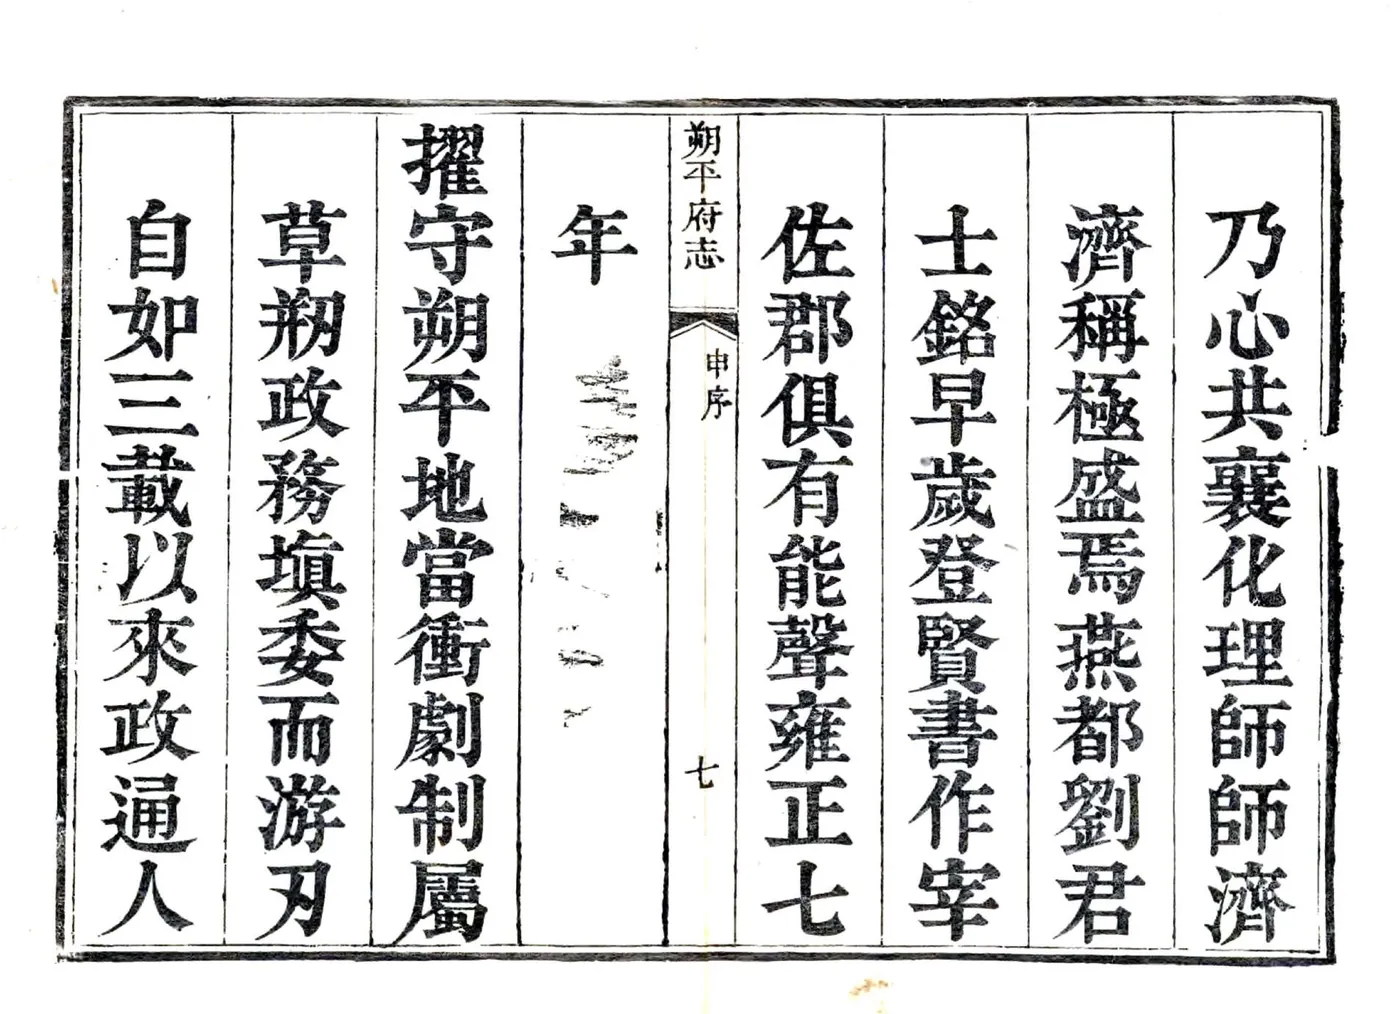 乃心共襄化理師師濟
濟稱極盛焉燕都劉君
士銘早歲登賢書作宰
佐郡俱有能聲雍正七
朔平府志
申序
七
年
擢守朔平地當衝劇制屬
草刱政務塡委而游刃
自如三載以來政通人